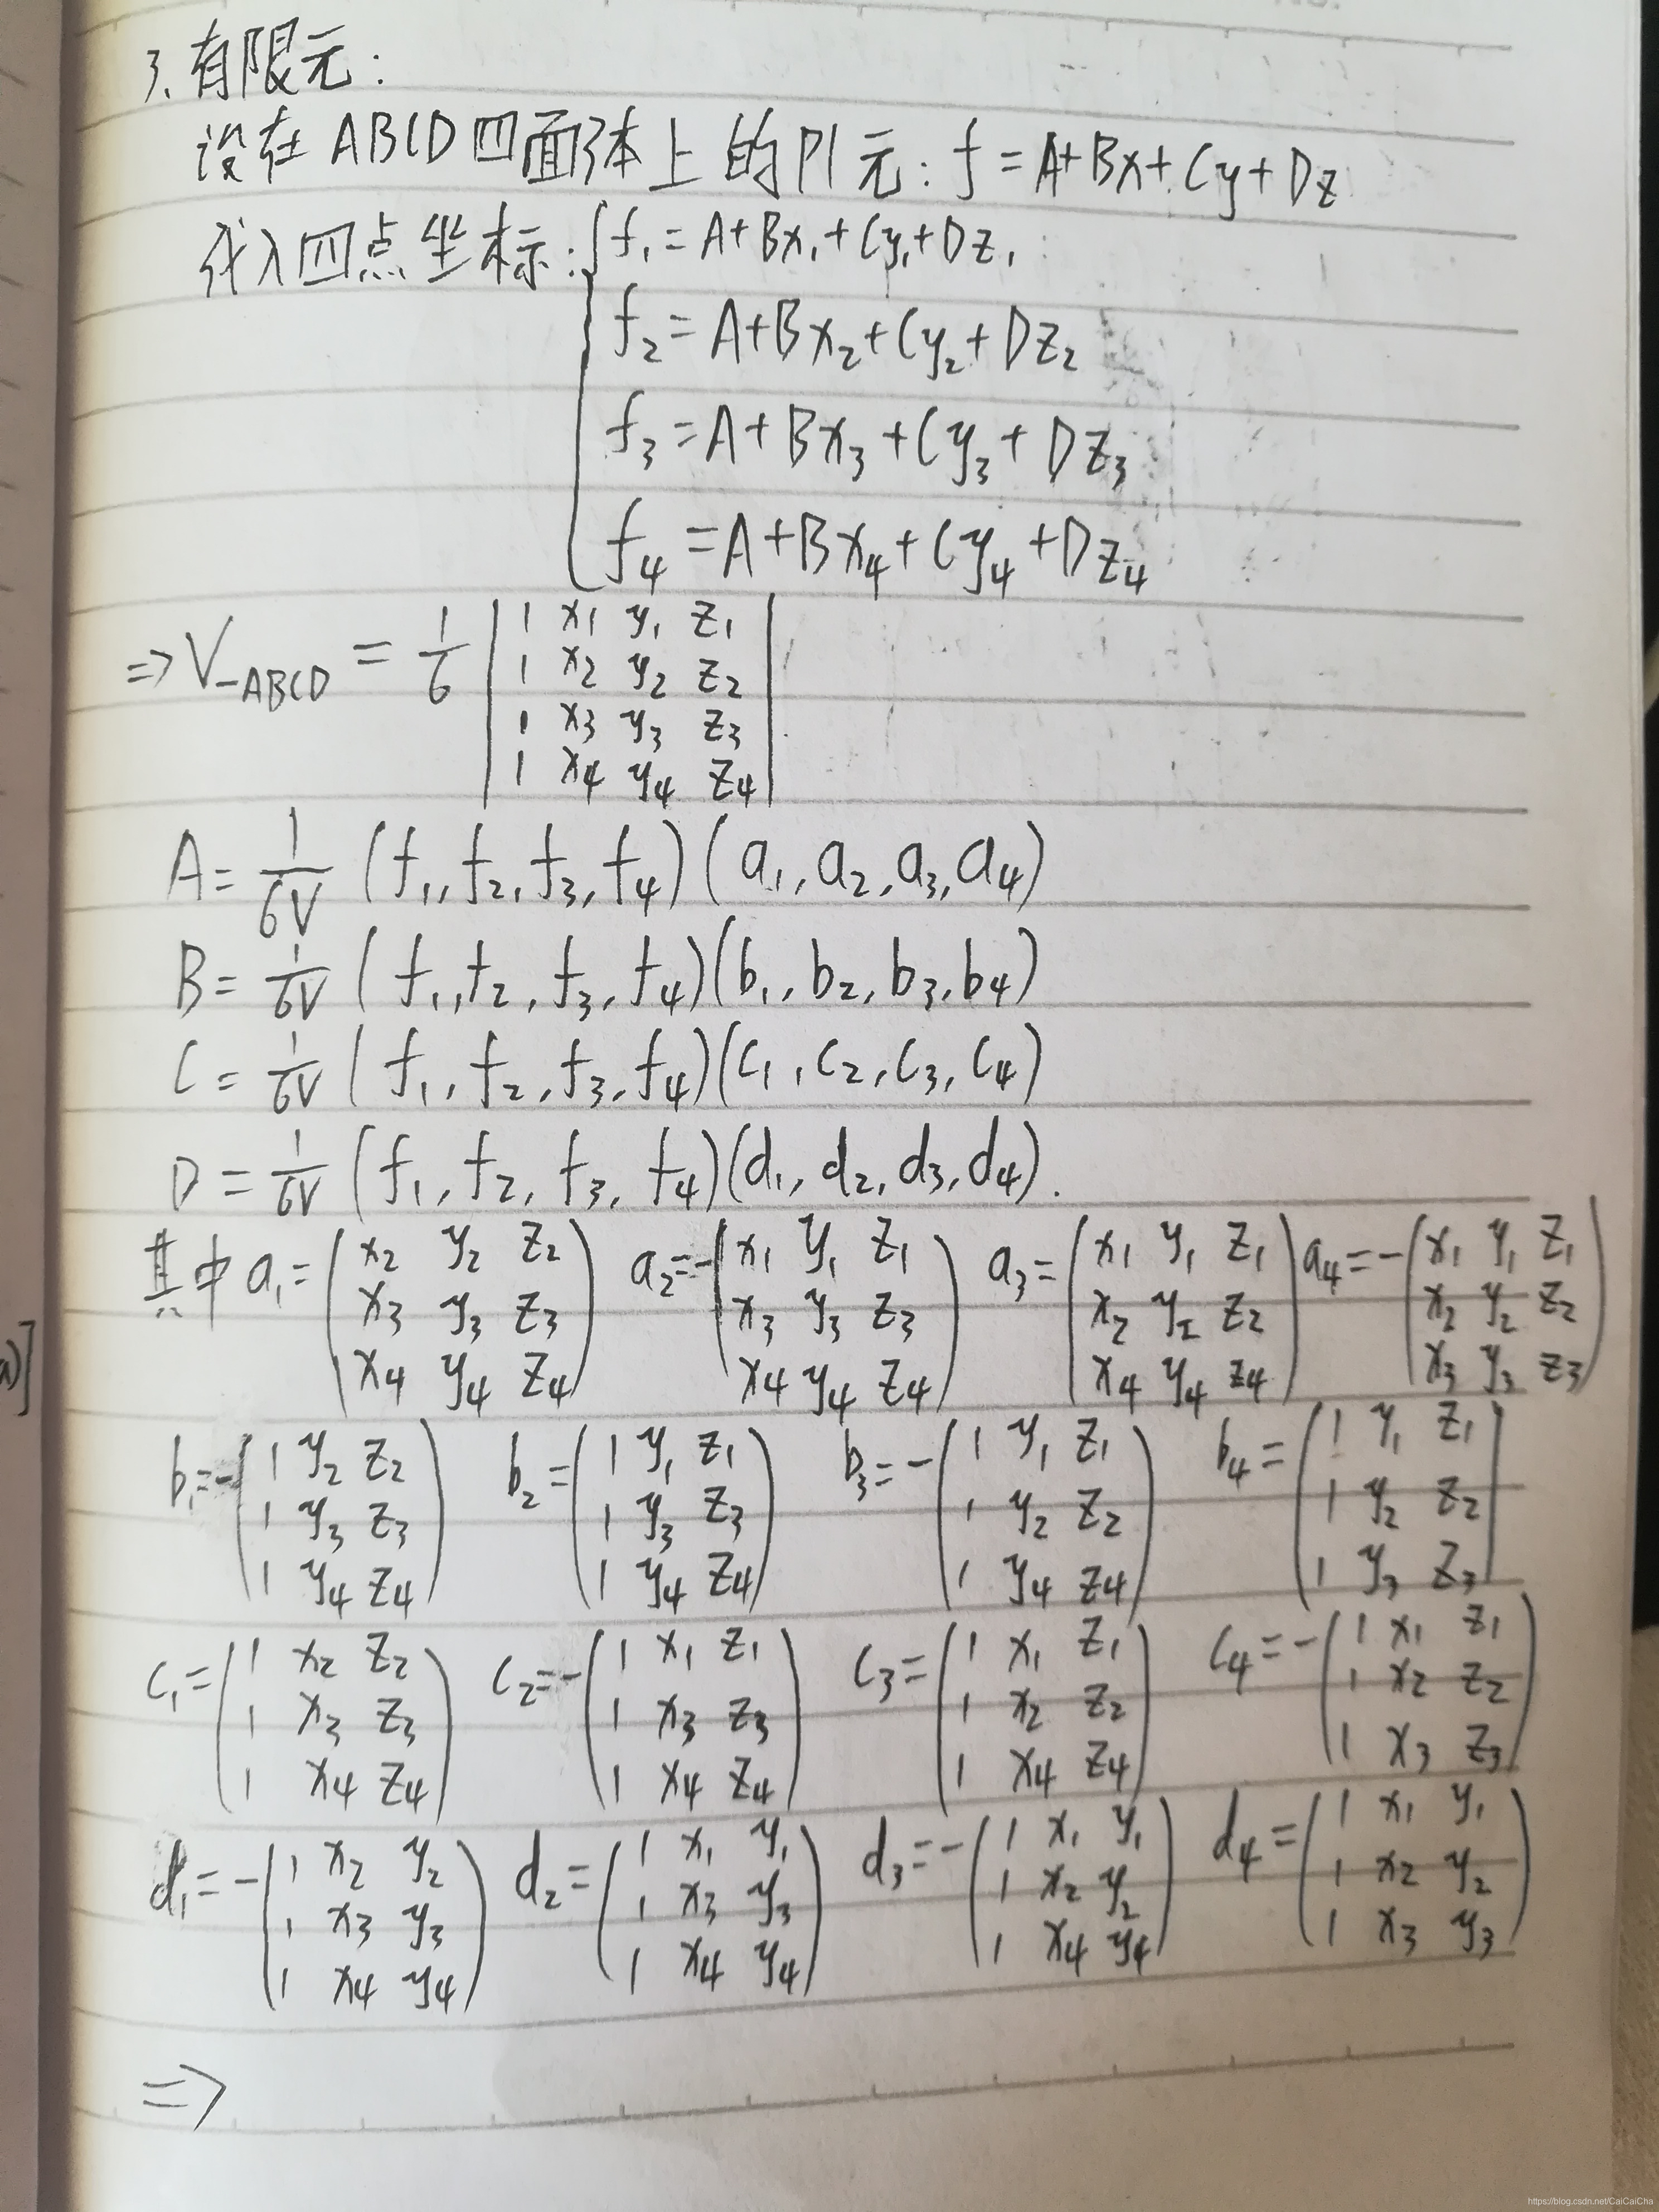 3. 有限元:
设在ABCD四面体上的P1元: f = A+Bx+Cy+Dz
代入四点坐标: { f₁ = A+Bx₁+Cy₁+Dz₁
f₂ = A+Bx₂+Cy₂+Dz₂
f₃ = A+Bx₃+Cy₃+Dz₃
f₄ = A+Bx₄+Cy₄+Dz₄
⇒ V_ABCD = 1/6 | 1 x₁ y₁ z₁
1 x₂ y₂ z₂
1 x₃ y₃ z₃
1 x₄ y₄ z₄ |
A = 1/6V (f₁, f₂, f₃, f₄)(a₁, a₂, a₃, a₄)
B = 1/6V (f₁, f₂, f₃, f₄)(b₁, b₂, b₃, b₄)
C = 1/6V (f₁, f₂, f₃, f₄)(c₁, c₂, c₃, c₄)
D = 1/6V (f₁, f₂, f₃, f₄)(d₁, d₂, d₃, d₄).
其中 a₁ = ( x₂ y₂ z₂ a₂ = -( x₁ y₁ z₁ a₃ = ( x₁ y₁ z₁ a₄ = -( x₁ y₁ z₁
x₃ y₃ z₃ x₃ y₃ z₃ x₂ y₂ z₂ x₂ y₂ z₂
x₄ y₄ z₄ ) x₄ y₄ z₄ ) x₄ y₄ z₄ ) x₃ y₃ z₃ )
b₁ = -( 1 y₂ z₂ b₂ = ( 1 y₁ z₁ b₃ = -( 1 y₁ z₁ b₄ = ( 1 y₁ z₁
1 y₃ z₃ 1 y₃ z₃ 1 y₂ z₂ 1 y₂ z₂
1 y₄ z₄ ) 1 y₄ z₄ ) 1 y₄ z₄ ) 1 y₃ z₃ )
c₁ = ( 1 x₂ z₂ c₂ = -( 1 x₁ z₁ c₃ = ( 1 x₁ z₁ c₄ = -( 1 x₁ z₁
1 x₃ z₃ 1 x₃ z₃ 1 x₂ z₂ 1 x₂ z₂
1 x₄ z₄ ) 1 x₄ z₄ ) 1 x₄ z₄ ) 1 x₃ z₃ )
d₁ = -( 1 x₂ y₂ d₂ = ( 1 x₁ y₁ d₃ = -( 1 x₁ y₁ d₄ = ( 1 x₁ y₁
1 x₃ y₃ 1 x₃ y₃ 1 x₂ y₂ 1 x₂ y₂
1 x₄ y₄ ) 1 x₄ y₄ ) 1 x₄ y₄ ) 1 x₃ y₃ )
⇒
https://blog.csdn.net/CaiCaiCha